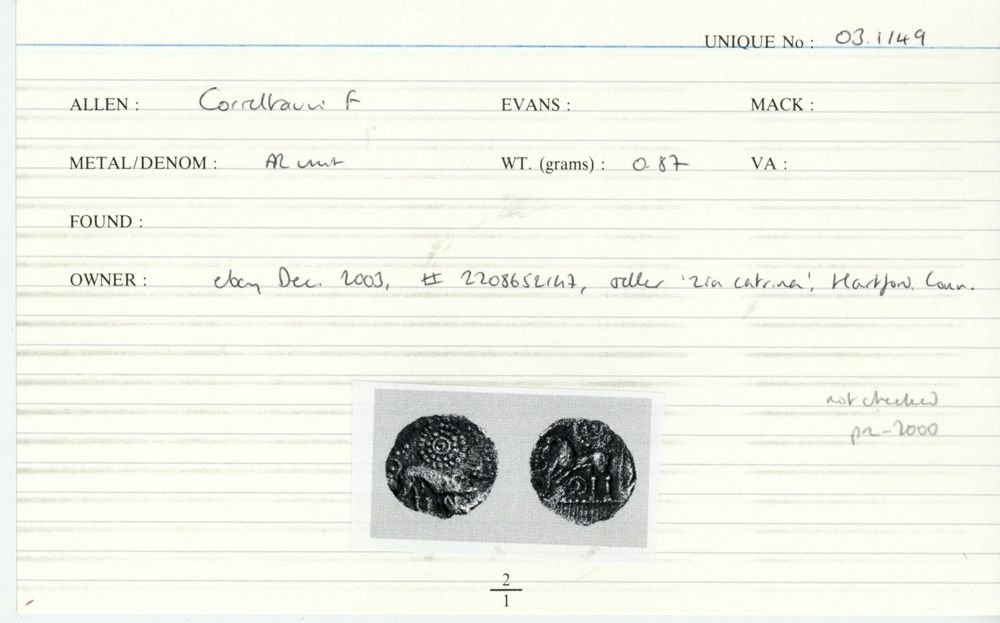 UNIQUE No : 03.1149
ALLEN : Correltauvi F EVANS : MACK :
METAL/DENOM : AR unit WT. (grams) : 0.87 VA :
FOUND :
OWNER : ebay Dec. 2003, # 2208652147, seller 'zia catrina', Hartford. Conn.
not checked
pre-2000
2
1